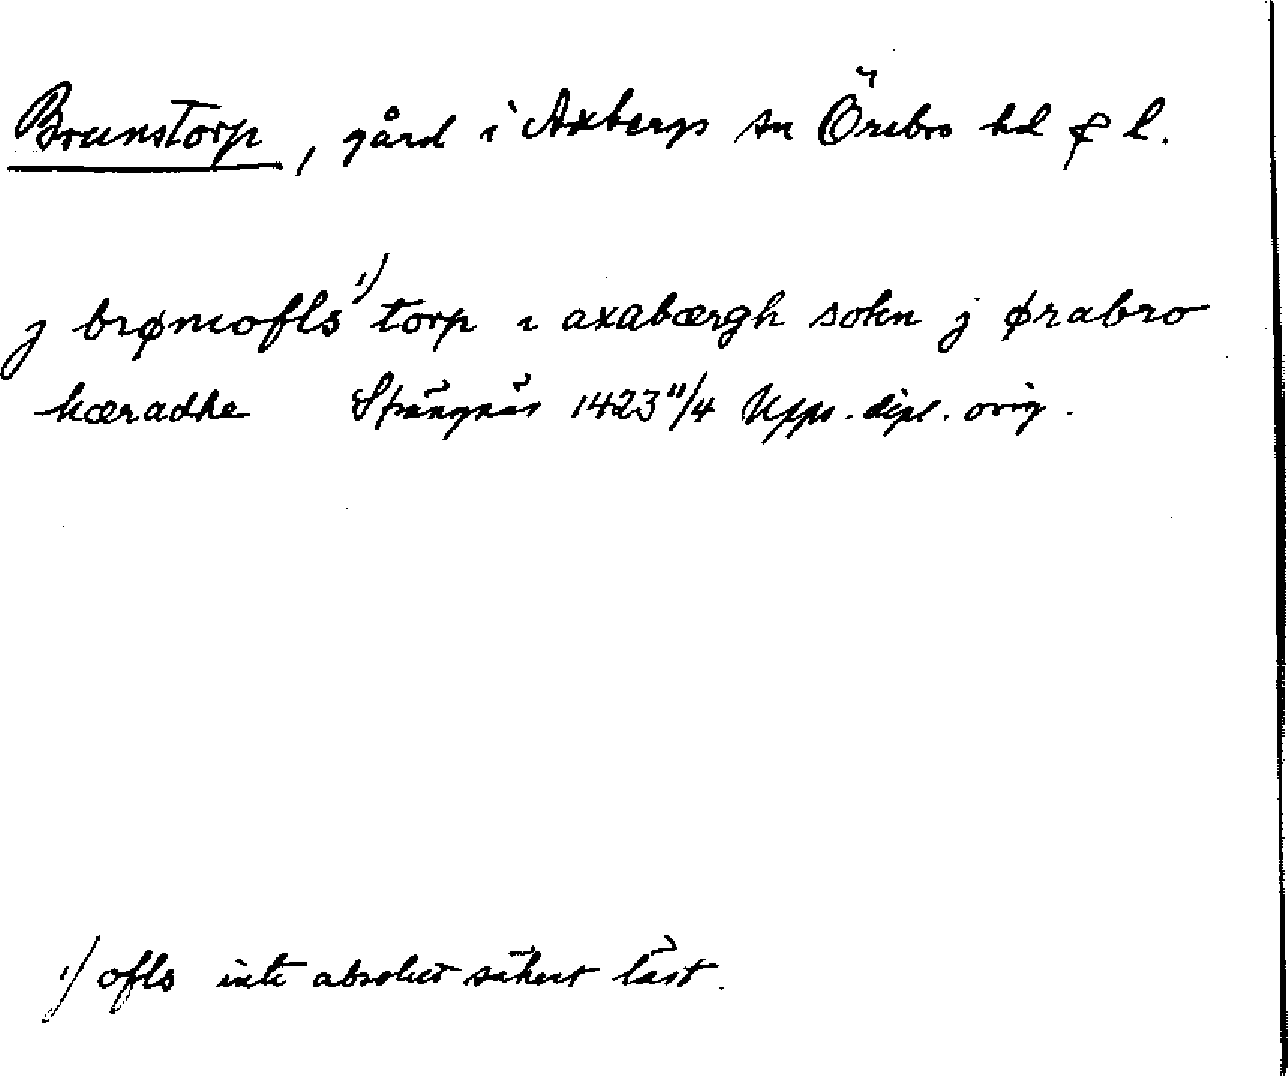 Brunstorp, gård i Axbergs sn Örebro hd o l.
j brømofls¹⁾ torp i axabærgh sokn j ørabro
hæradhe Strängnäs 1423 11/4 Upps. dipl. orig.
1) ofls inte absolut säkert läst.